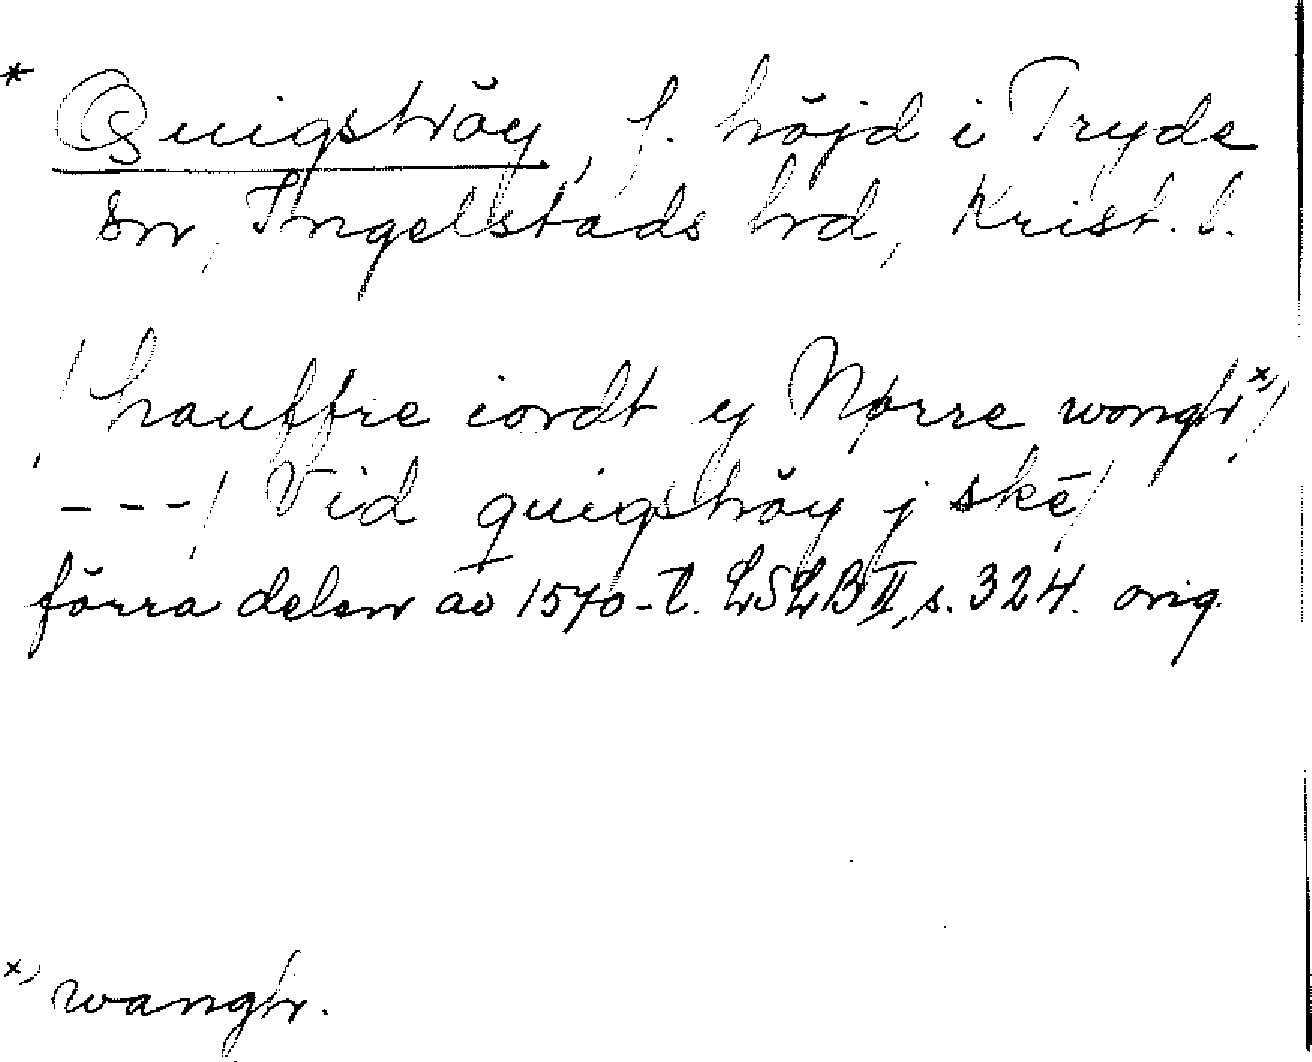 * Quigshöy, f. höjd i Tryde
sn, Ingelstads hd, Krist. l.
/ hauffre iordt y Nørre wongh x)/
---/ Vid quigshöy j skē/
förra delen av 1570-t. LSLB II, s. 324. orig.
x) wangh.